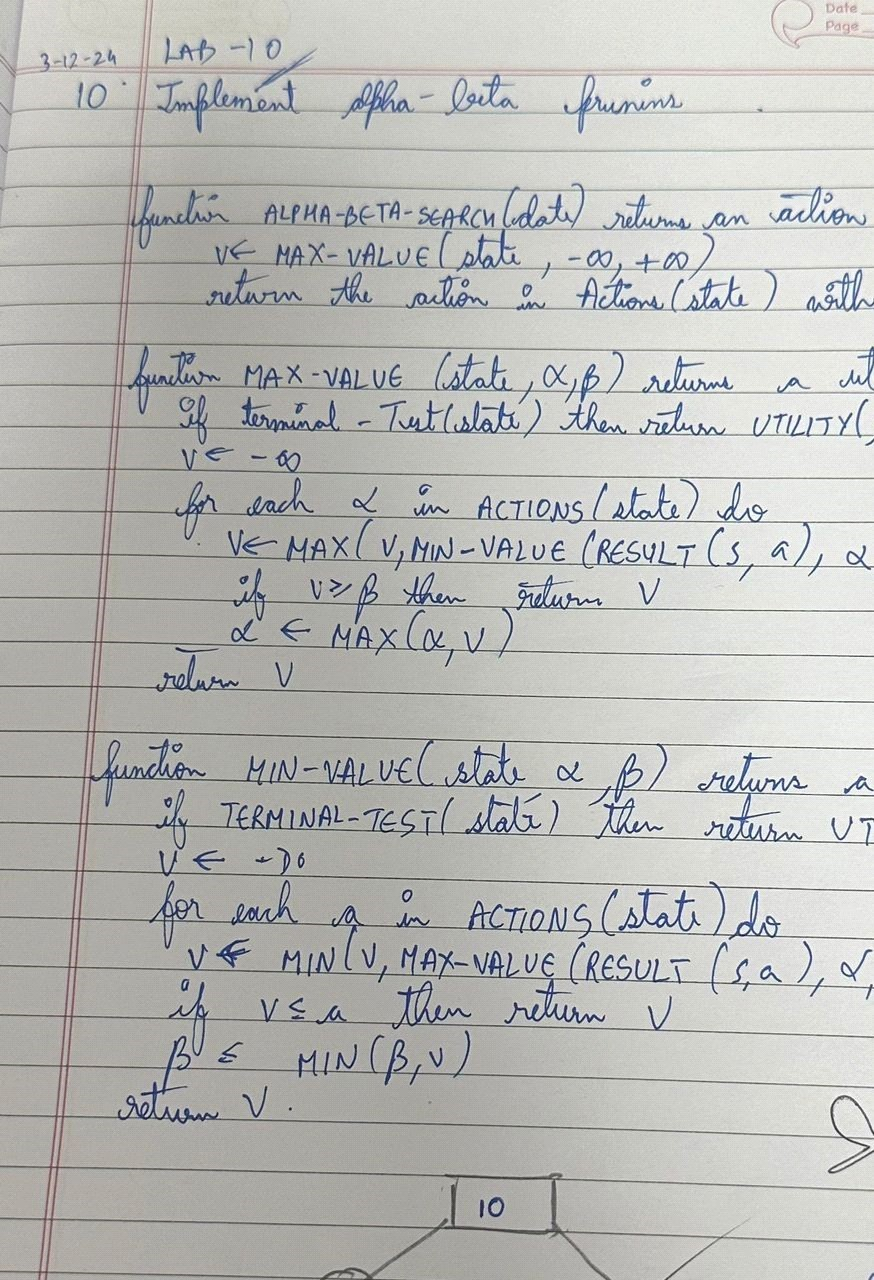 Date
Page
3-12-24 LAB-10
10. Implement alpha-beta prunins.
function ALPHA-BETA-SEARCH(state) returns an action
V← MAX-VALUE(state, -∞, +∞)
return the action in Actions(state) with
function MAX-VALUE (state, α, β) returns a ut
if terminal-Test(state) then return UTILITY(
V← -∞
for each α in ACTIONS(state) do
V← MAX(V, MIN-VALUE(RESULT(s, a), α
if V≥β then return V
α ← MAX(α, V)
return V
function MIN-VALUE(state α, β) returns a
if TERMINAL-TEST(state) then return UT
V ←
for each a in ACTIONS(state) do
V ← MIN(V, MAX-VALUE(RESULT (s,a), α,
if V≤a then return V
β ≤ MIN(β, V)
return V.
10